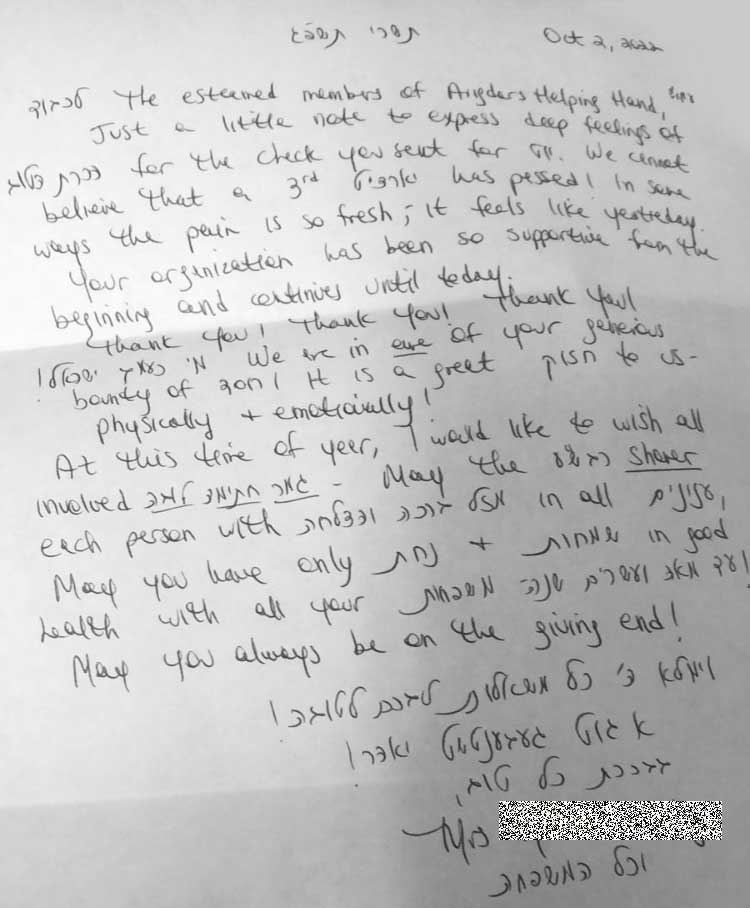 תשרי תשפ"ג Oct 2, 2022
לכבוד The esteemed members of Avigdors Helping Hand,
Just a little note to express deep feelings of
הכרת הטוב for the check you sent for יו"ט. We cannot
believe that a 3rd יארצייט has passed! In some
ways the pain is so fresh; it feels like yesterday.
Your organization has been so supportive from the
beginning and continues until today.
Thank you! Thank you! Thank you!
מי כעמך ישראל! We are in awe of your generous
bounty of חסד! It is a great חיזוק to us-
physically + emotionally!
At this time of year, I would like to wish all
involved גמר חתימה טובה - May the רבש"ע shower
each person with ברכה והצלחה in all ענינים,
May you have only נחת + שמחות in good
health with all your משפחות עד מאה ועשרים שנה!
May you always be on the giving end!
וימלא ה' כל משאלות לבכם לטובה!
א גוט געבענטשט יאהר!
בברכת כל טוב,
Mrs
וכל המשפחה